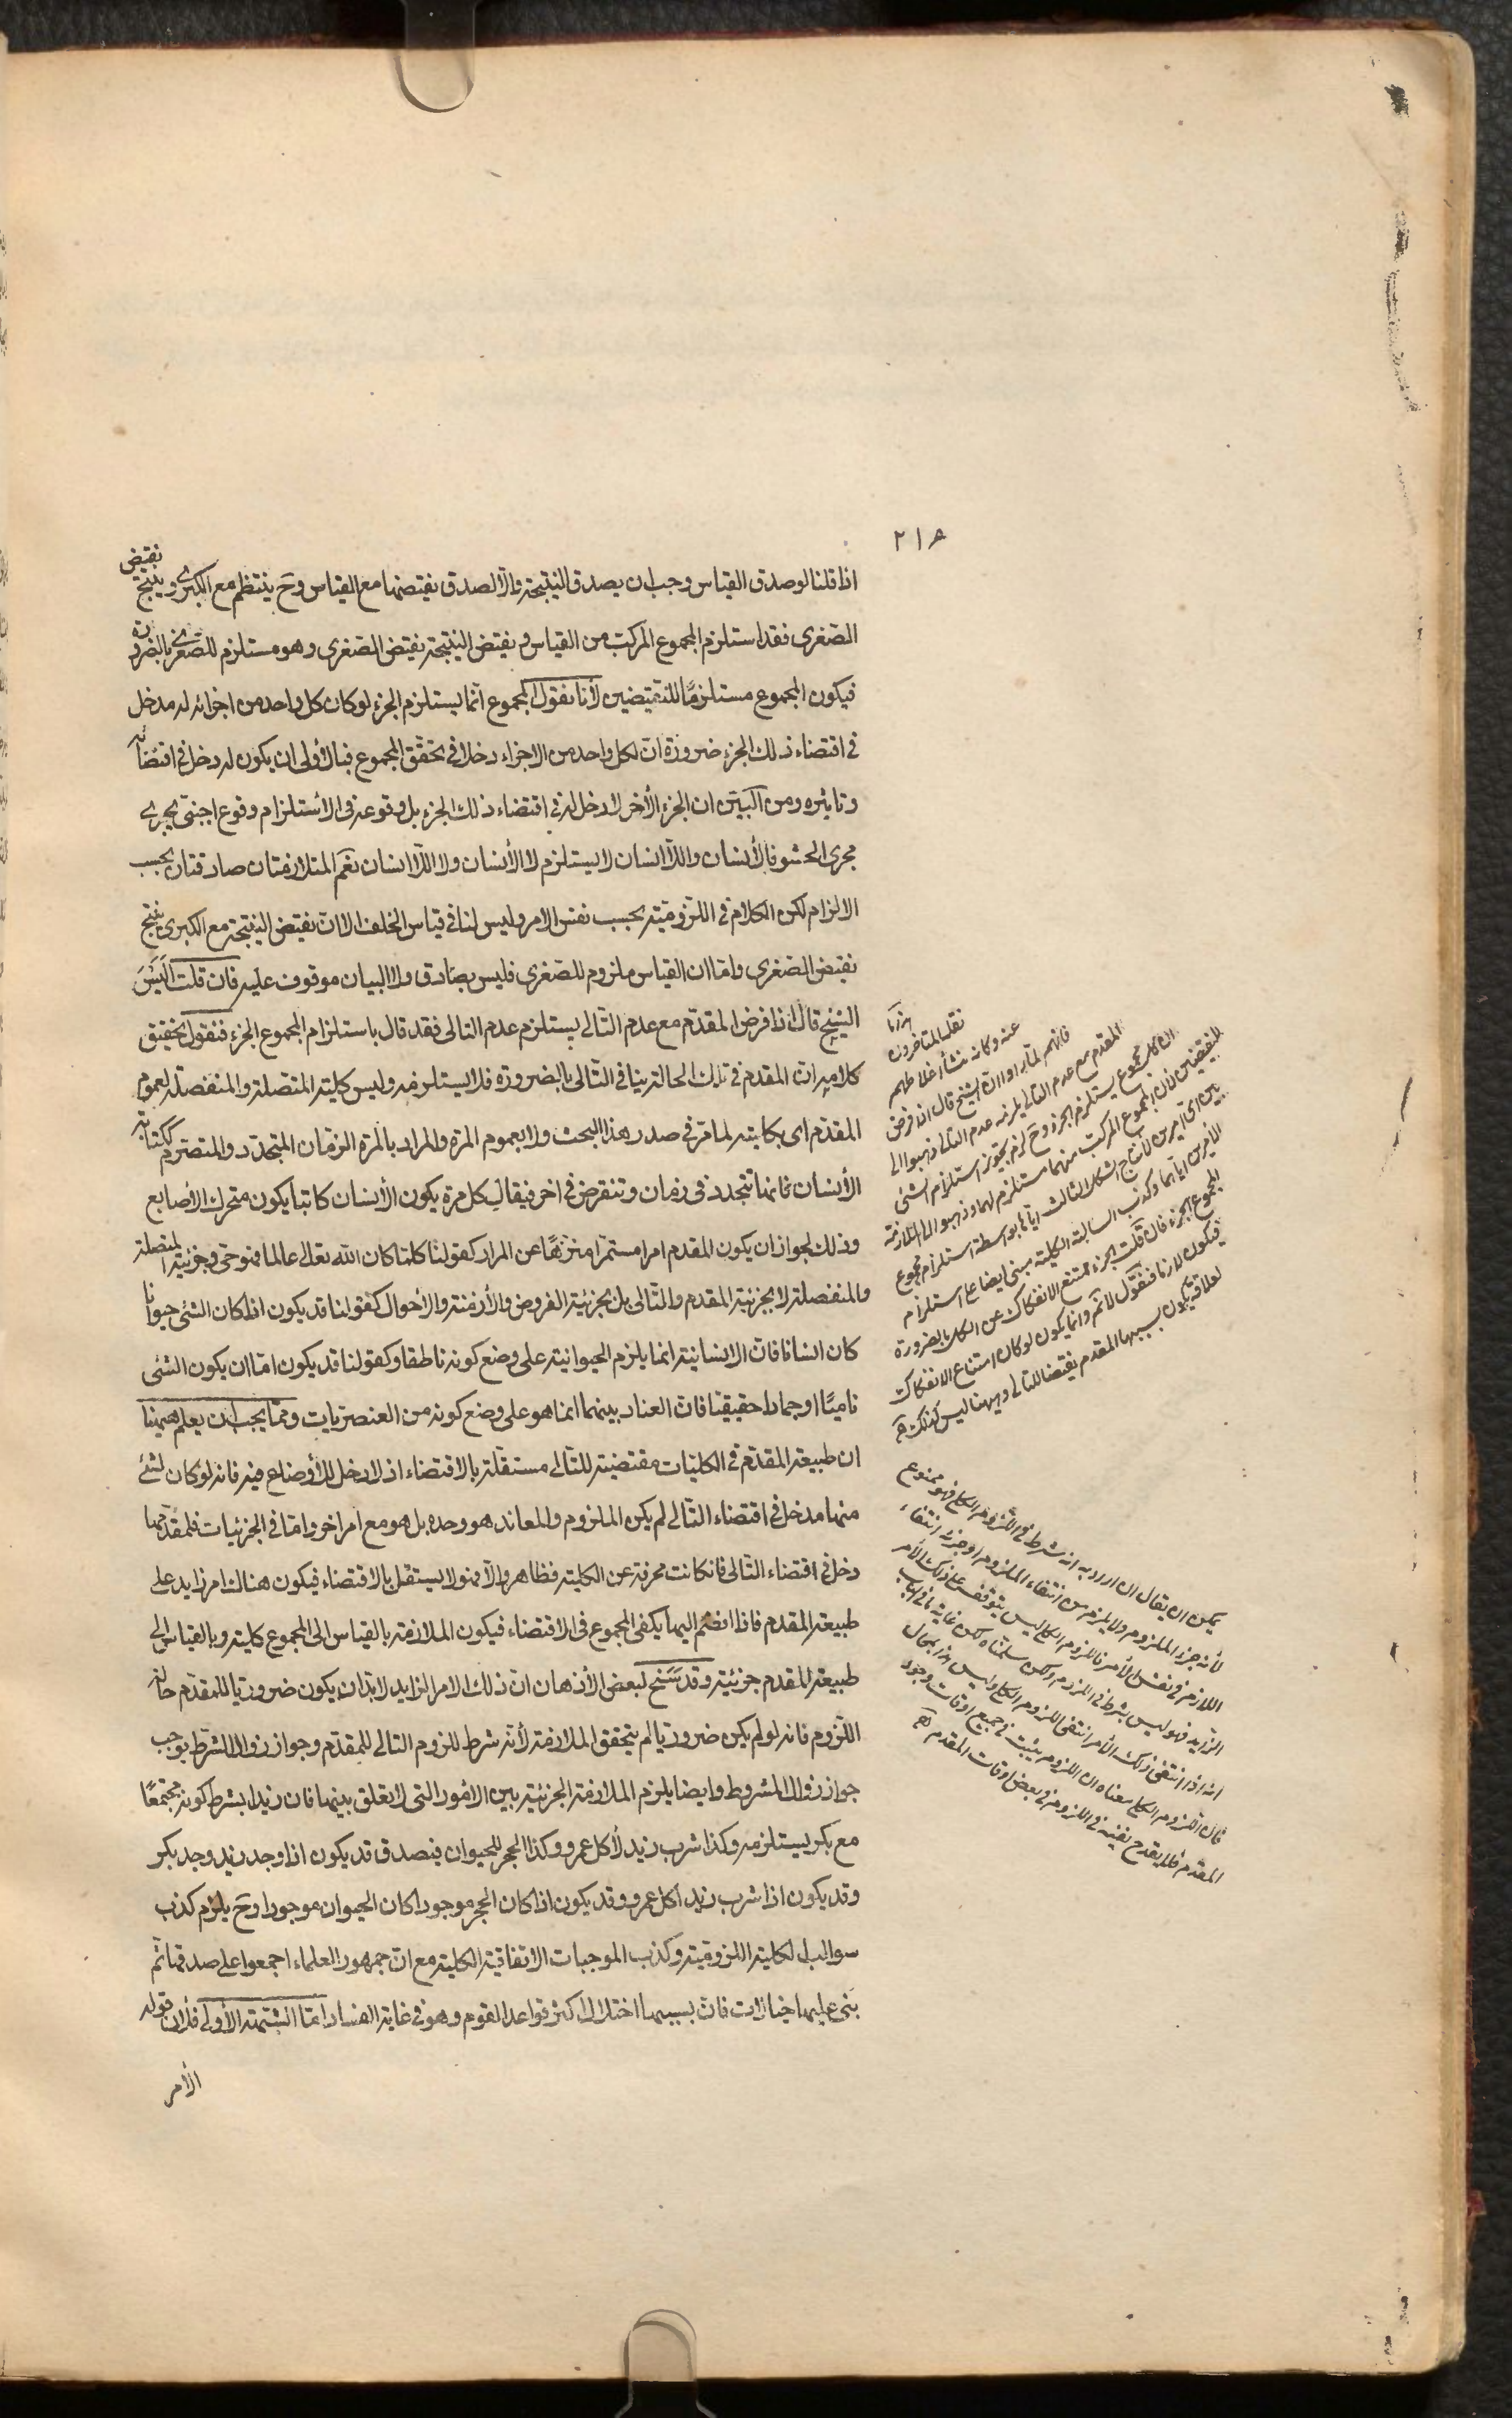 ٢١٨
اذا قلنا لو صدق القياس وجب ان يصدق النتيجة والّا لصدق نقيضها مع القياس وح ينتظم مع الكبرى وينتج نقيض
الصّغرى فقد استلزم المجموع المركب من القياس و نقيض النتيجة نقيض الصّغرى وهو مستلزم للصّغرى بالضّرورة
فيكون المجموع مستلزمًا للنقيضين لأنا نقول المجموع انّما يستلزم الجزء لو كان كل واحد من اجزائه له مدخل
فى اقتضاء ذلك الجزء ضرورة انّ لكل واحد من الاجزاء دخلا فى تحقّق المجموع فبالأولى ان يكون له دخل فى اقتضائه
وتاثيره ومن البيّن ان الجزء الأخر لا دخل له فى اقتضاء ذلك الجزء بل وقوعه فى الاستلزام وقوع اجنبىّ يجرى
مجرى الحشو فالأنسان واللّاانسان لا يستلزم لا الأنسان ولا اللّاانسان نعم المتلازمتان صادقتان بحسب
الالزام لكن الكلام فى اللّزوميّة بحسب نفس الامر وليس لنا فى قياس الخلف الّا انّ نقيض النتيجة مع الكبرى ينتج
نقيض الصّغرى وامّا ان القياس ملزوم للصغرى فليس بصادق ولا البيان موقوف عليه فان قلت اَلَيْسَ
الشيخ قال اذا فرض المقدّم مع عدم التّالى يستلزم عدم التالى فقد قال باستلزام المجموع الجزء فنقول تحقيق
كلامه انّ المقدم فى تلك الحالة ينافى التّالى بالضرورة فلا يستلزمه وليس كلية المتّصلة والمنفصلة لعموم
المقدّم اى بكليته لما مرّ فى صدر هذا البحث ولا بعموم المرة والمراد بالمرة الزمان المتجدّد والمتصرّم ككتابة
الأنسان فانها تتجدد فى زمان وتنقرض فى اخر فيقال كل مرة يكون الأنسان كاتبا يكون متحرك الأصابع
وذلك لجواز ان يكون المقدم امرا مستمرّا منزّهًا عن المراد كقولنا كلما كان الله تعالى عالما فهو حى وجزئية المتصلة
والمنفصلة لا بجزئية المقدم والتّالى بل بجزئية الفروض والأزمنة والأحوال كقولنا قد يكون اذا كان الشئ حيوانا
كان انسانا فان الانسانية انما يلزم الحيوانية على وضع كونه ناطقا وكقولنا قد يكون امّا ان يكون الشئى
ناميًا او جمادا حقيقيّا فانّ العناد بينهما انما هو على وضع كونه من العنصريات وممّا يجب ان يعلم هيهنا
ان طبيعة المقدّم فى الكليّات مقتضية للتّالى مستقلّة بالاقتضاء اذ لا دخل للأوضاع فيه فانه لو كان لشئ
منها مدخل فى اقتضاء التّالى لم يكن الملزوم والمعاند هو وحده بل هو مع امر اخر وامّا فى الجزئيات فلمقدّمها
دخل فى اقتضاء التّالى فانكانت محرفة عن الكلية فظاهر والّا فهو لا يستقل بالاقتضاء فيكون هناك امر زايد على
طبيعة المقدم فاذا انضم اليها يكفى المجموع فى الاقتضاء فيكون الملازمة بالقياس الى المجموع كلية وبالقياس الى
طبيعة المقدم جزئية وقد سَنح لبعض الأذهان انّ ذلك الامر الزايد لا بدّ ان يكون ضروريّا للمقدّم حالة
اللّزوم فانه لو لم يكن ضروريّا لم يتحقق الملازمة لأنّه شرط للزوم التالى للمقدّم وجواز زوال الشّرط يوجب
جواز زوال المشروط وايضا يلزم الملازمة الجزئيّة بين الامور التى لا تعلق بينها فان زيدا بشرط كونه مجتمعًا
مع بكر يستلزمه وكذا شرب زيد لأكل عمرو وكذا الحجر للحيوان فيصدق قد يكون اذا وجد زيد وجد بكر
وقد يكون اذا شرب زيد اكل عمرو وقد يكون اذا كان الحجر موجودا كان الحيوان موجودا وح يلزم كذب
سوالب الكلية اللزوميّة وكذب الموجبات الاتفاقية الكلية مع انّ جمهور العلماء اجمعوا على صدقها ثم
بنى عليها خيالات فان بسببها اختلال اكثر قواعد القوم وهو فى غاية الفساد امّا الشبهة الأولى فلأن قوله
الأمر
هذا ما
نقله المتاخرون
عنه وكانه منشأ اغلاطهم
فانهم لمّا راوا ان الشيخ قال اذا فرض
المقدم مع عدم التالى يلزمه عدم التالى ذهبوا الى
ان كل مجموع يستلزم الجزء وح لزم تجويز استلزام الشئى
للنقيضين لان المجموع المركب منهما مستلزم لهما وذهبوا الى الملازمة
بين اى امرين لانتاج الشكل الثالث ايّاها بواسطة استلزام مجموع
الامرين ايّاهما وكذب السالبة الكلية مبنى ايضا على استلزام
المجموع الجزء فان قلت الجزء ممتنع الانفكاك عن الكل بالضرورة
فيكون لازما فنقول لا نم وانما يكون لو كان امتناع الانفكاك
لعلاقة يكون بسببها المقدم مقتضيا للتالى وهيهنا ليس كذلك
يمكن ان يقال ان اراد به انه شرط فى اللّزوم الكلى فهو ممنوع
لأنه جزء الملزوم ولا يلزم من انتفاء الملزوم او جزئه انتفاء
اللازم فى نفس الأمر فاللزوم الكلى ليس يتوقف على ذلك الأمر
الزايد فهو ليس بشرط فى اللزوم ولكن سلّمناه لكن غاية ما فى الباب
انه اذا انتفى ذلك الأمر انتفى اللزوم الكلى وليس هذا بمحال
فان اللزوم الكلى معناه ان اللزوم يثبت فى جميع اوقات وجود
المقدم فلا يقدح نفيه فى اللزوم فى بعض اوقات المقدم